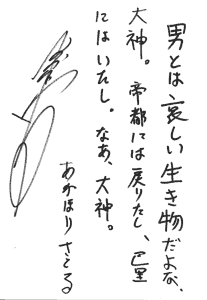 男とは哀しい生き物だよな、
大神。帝都には戻りたし、巴里
にはいたし。なあ、大神。
あかほりさとる